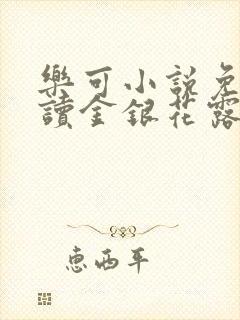 樂可小說免
讀金銀花露
惠西平